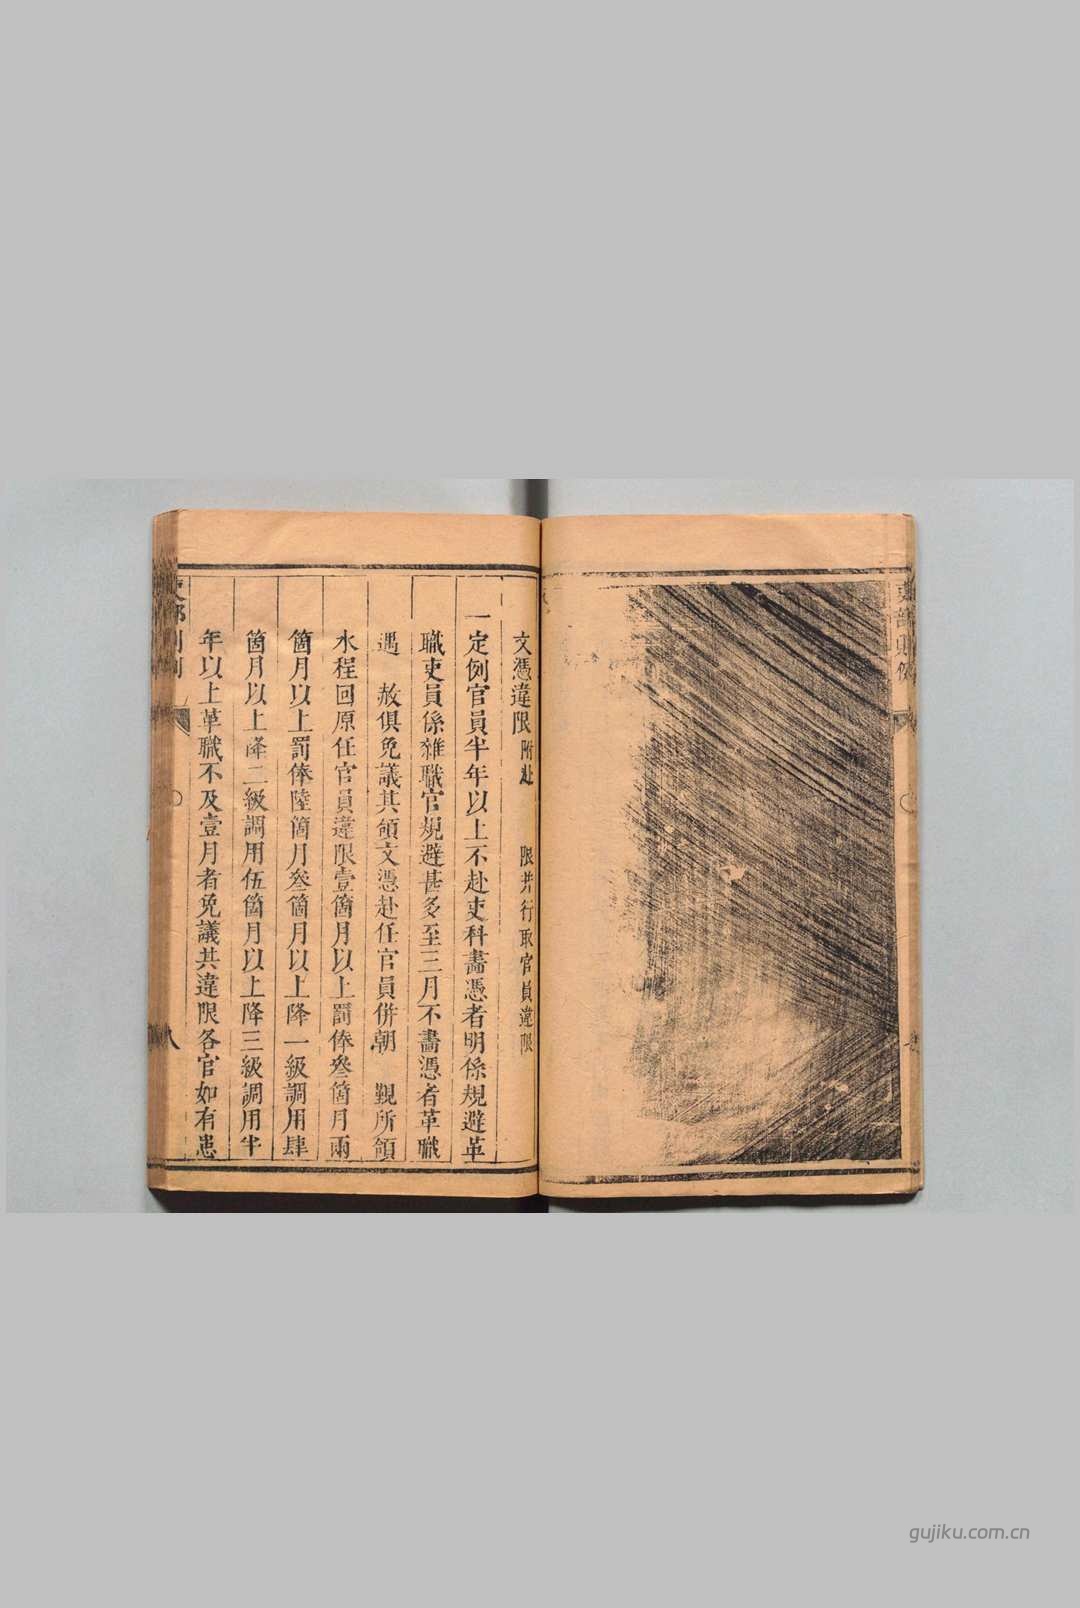 吏部則例
文憑違限附赴
限并行取官員違限
一定例官員半年以上不赴吏科畵憑者明係規避革
職吏員係雜職官規避甚多至三月不畵憑者革職
遇　赦俱免議其領文憑赴任官員併朝　覲所領
水程回原任官員違限壹箇月以上罰俸叄箇月兩
箇月以上罰俸陸箇月叄箇月以上降一級調用肆
箇月以上降二級調用伍箇月以上降三級調用半
年以上革職不及壹月者免議其違限各官如有患
吏部則例
八
gujiku.com.cn